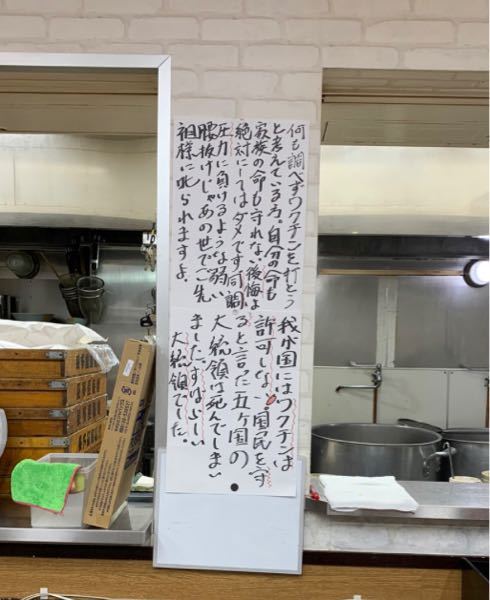 何も調べずワクチンを打とう
と考えている方、自分の命も
家族の命も守れない、後悔よ
絶対にしてはダメです。同調
圧力に負けるような弱い
腰抜けじゃあの世でご先
祖様に叱られますよ。
我が国にはワクチンは
許可しない。国民を守
ると言った五ヶ国の
大統領は死んでしまい
ました。すばらしい
大統領でした。